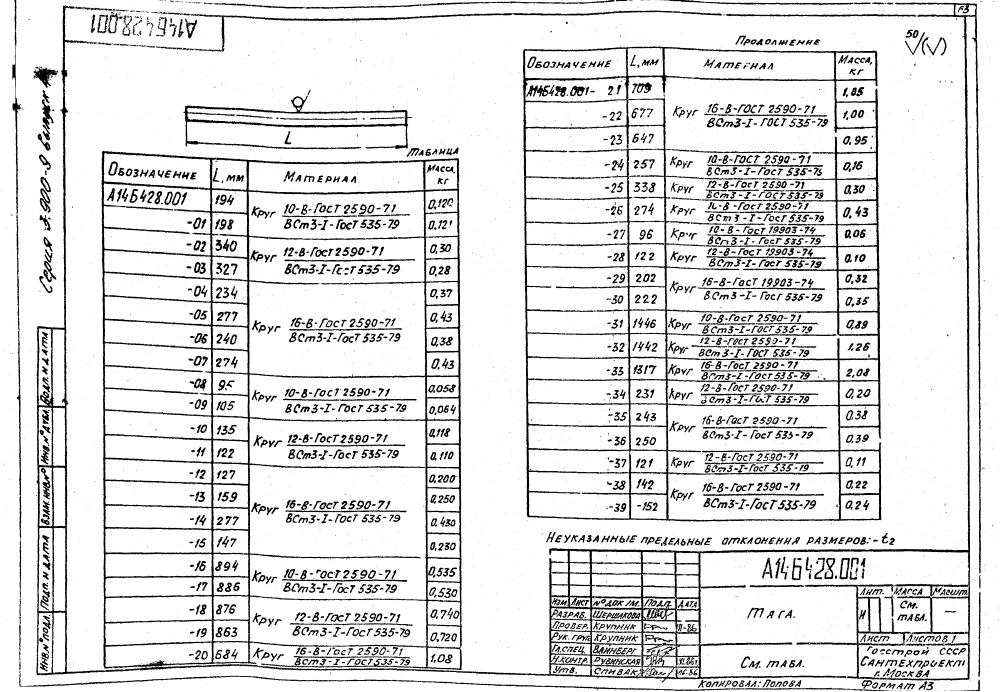 А14Б428.001
Г3
50
(√)
L
Таблица
Обозначение L, мм Материал Масса, кг
А14Б428.001 194 Круг 10-В-ГОСТ 2590-71 / ВСт3-I-ГОСТ 535-79 0,120
-01 198 0,121
-02 340 Круг 12-В-ГОСТ 2590-71 / ВСт3-I-ГОСТ 535-79 0,30
-03 327 0,28
-04 234 Круг 16-В-ГОСТ 2590-71 / ВСт3-I-ГОСТ 535-79 0,37
-05 277 0,43
-06 240 0,38
-07 274 0,43
-08 95 Круг 10-В-ГОСТ 2590-71 / ВСт3-I-ГОСТ 535-79 0,058
-09 105 0,064
-10 135 Круг 12-В-ГОСТ 2590-71 / ВСт3-I-ГОСТ 535-79 0,118
-11 122 0,110
-12 127 Круг 16-В-ГОСТ 2590-71 / ВСт3-I-ГОСТ 535-79 0,200
-13 159 0,250
-14 277 0,430
-15 147 0,230
-16 894 Круг 10-В-ГОСТ 2590-71 / ВСт3-I-ГОСТ 535-79 0,535
-17 886 0,530
-18 876 Круг 12-В-ГОСТ 2590-71 / ВСт3-I-ГОСТ 535-79 0,740
-19 863 0,720
-20 684 Круг 16-В-ГОСТ 2590-71 / ВСт3-I-ГОСТ 535-79 1.08
Продолжение
Обозначение L, мм Материал Масса, кг
А14Б428.001- 21 709 Круг 16-В-ГОСТ 2590-71 / ВСт3-I-ГОСТ 535-79 1,05
-22 677 1,00
-23 647 0,95
-24 257 Круг 10-В-ГОСТ 2590-71 / ВСт3-I-ГОСТ 535-76 0,16
-25 338 Круг 12-В-ГОСТ 2590-71 / ВСт3-I-ГОСТ 535-79 0,30
-26 274 Круг 16-В-ГОСТ 2590-71 / ВСт3-I-ГОСТ 535-79 0,43
-27 96 Круг 10-В-ГОСТ 19903-74 / ВСт3-I-ГОСТ 535-79 0,06
-28 122 Круг 12-В-ГОСТ 19903-74 / ВСт3-I-ГОСТ 535-79 0,10
-29 202 Круг 16-В-ГОСТ 19903-74 / ВСт3-I-ГОСТ 535-79 0,32
-30 222 0,35
-31 1446 Круг 10-В-ГОСТ 2590-71 / ВСт3-I-ГОСТ 535-79 0,89
-32 1442 Круг 12-В-ГОСТ 2590-71 / ВСт3-I-ГОСТ 535-79 1.26
-33 1317 Круг 16-В-ГОСТ 2590-71 / ВСт3-I-ГОСТ 535-79 2,08
-34 231 Круг 12-В-ГОСТ 2590-71 / ВСт3-I-ГОСТ 535-79 0,20
-35 243 Круг 16-В-ГОСТ 2590-71 / ВСт3-I-ГОСТ 535-79 0.38
-36 250 0.39
-37 121 Круг 12-В-ГОСТ 2590-71 / ВСт3-I-ГОСТ 535-79 0,11
-38 142 Круг 16-В-ГОСТ 2590-71 / ВСт3-I-ГОСТ 535-79 0.22
-39 -152 0.24
Неуказанные предельные отклонения размеров: - t2
А14Б428.001
Изм. Лист № док им. Подп. Дата
Разраб. Шершакова
Провер. Крупник VI-86
Рук. груп. Крупник
Гл.спец. Вайнберг
Н.контр. Рувинская VI.86
Утв. Спивак VI-86
Тяга.
См. табл.
Лит. Масса Масшт.
И См. табл. —
Лист Листов 1
Госстрой СССР
Сантехпроект
г. Москва
Копировал: Попова
Формат А3
Серия 3.000-9 выпуск
Подп. и дата
Инв.№ дубл.
Взам. инв.№
Подп. и дата
Инв.№ подл.